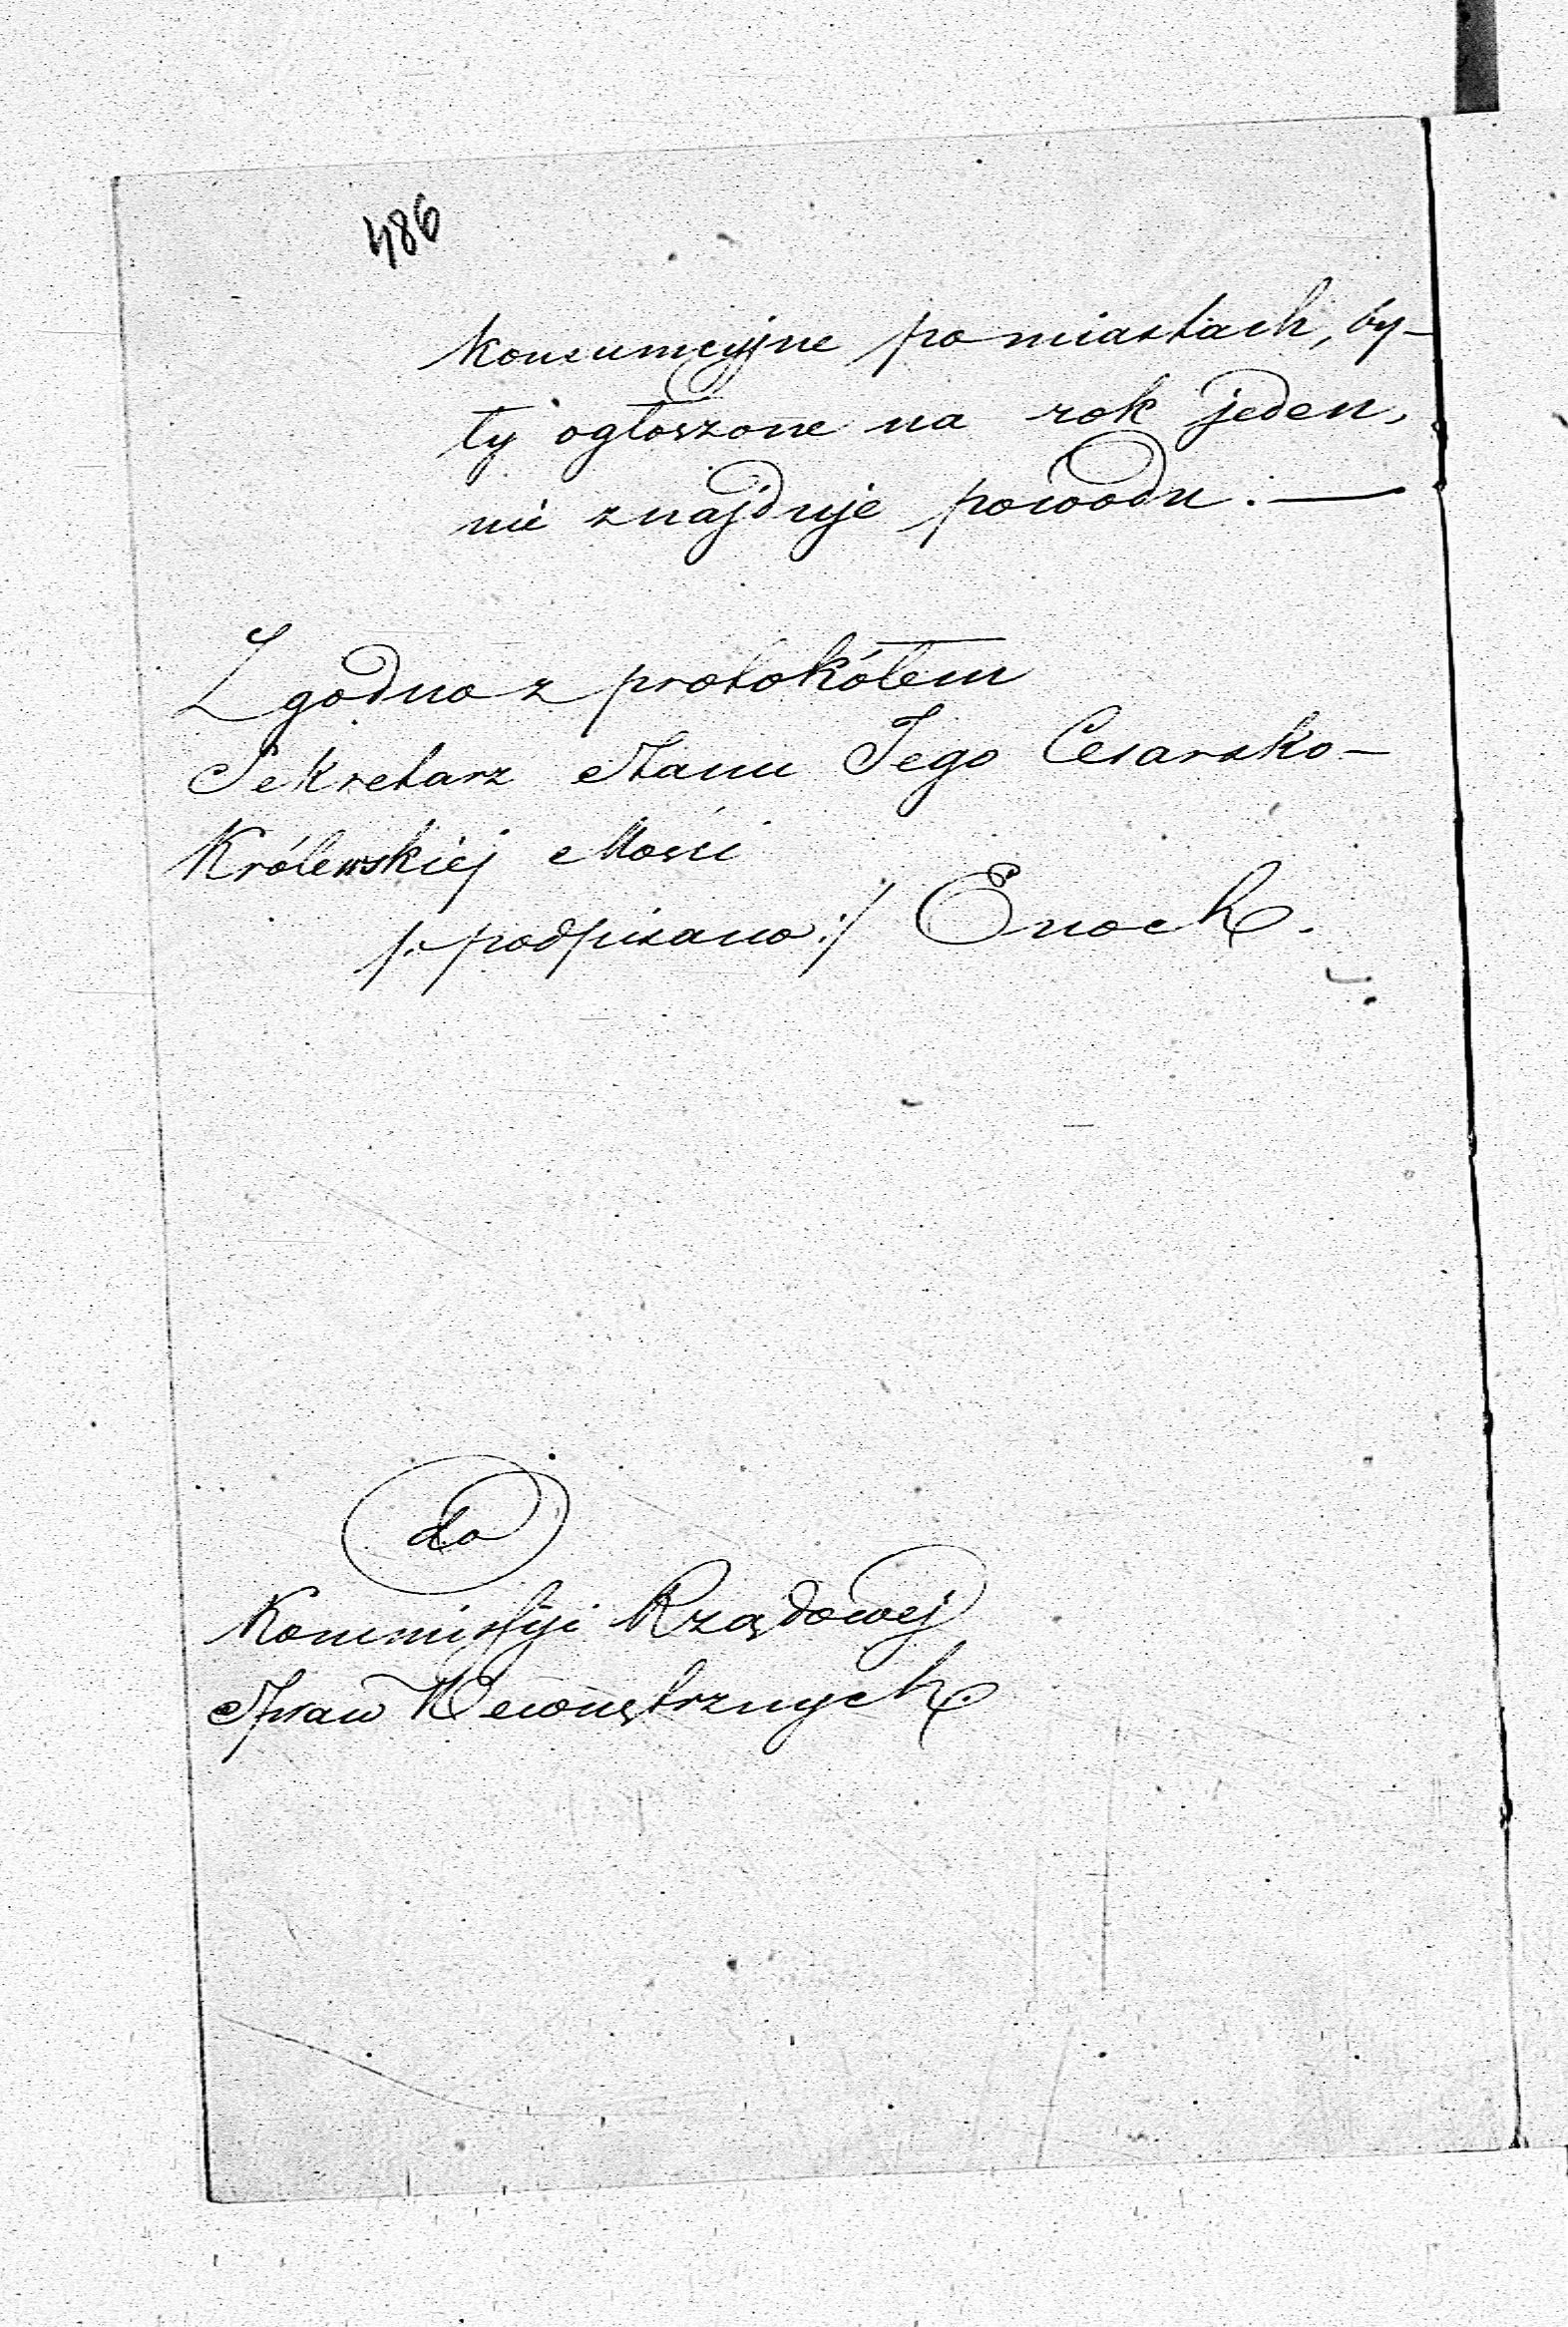 486
konsumcyjne po miastach, by-
ły ogłoszone na rok jeden,
nie znajduje powodu. —
Zgodno z protokółem
Sekretarz Stanu Jego Cesarsko-
Królewskiej Mości
/: podpisano :/ Enoch.
do
Kommissyi Rządowej
Spraw Wewnętrznych